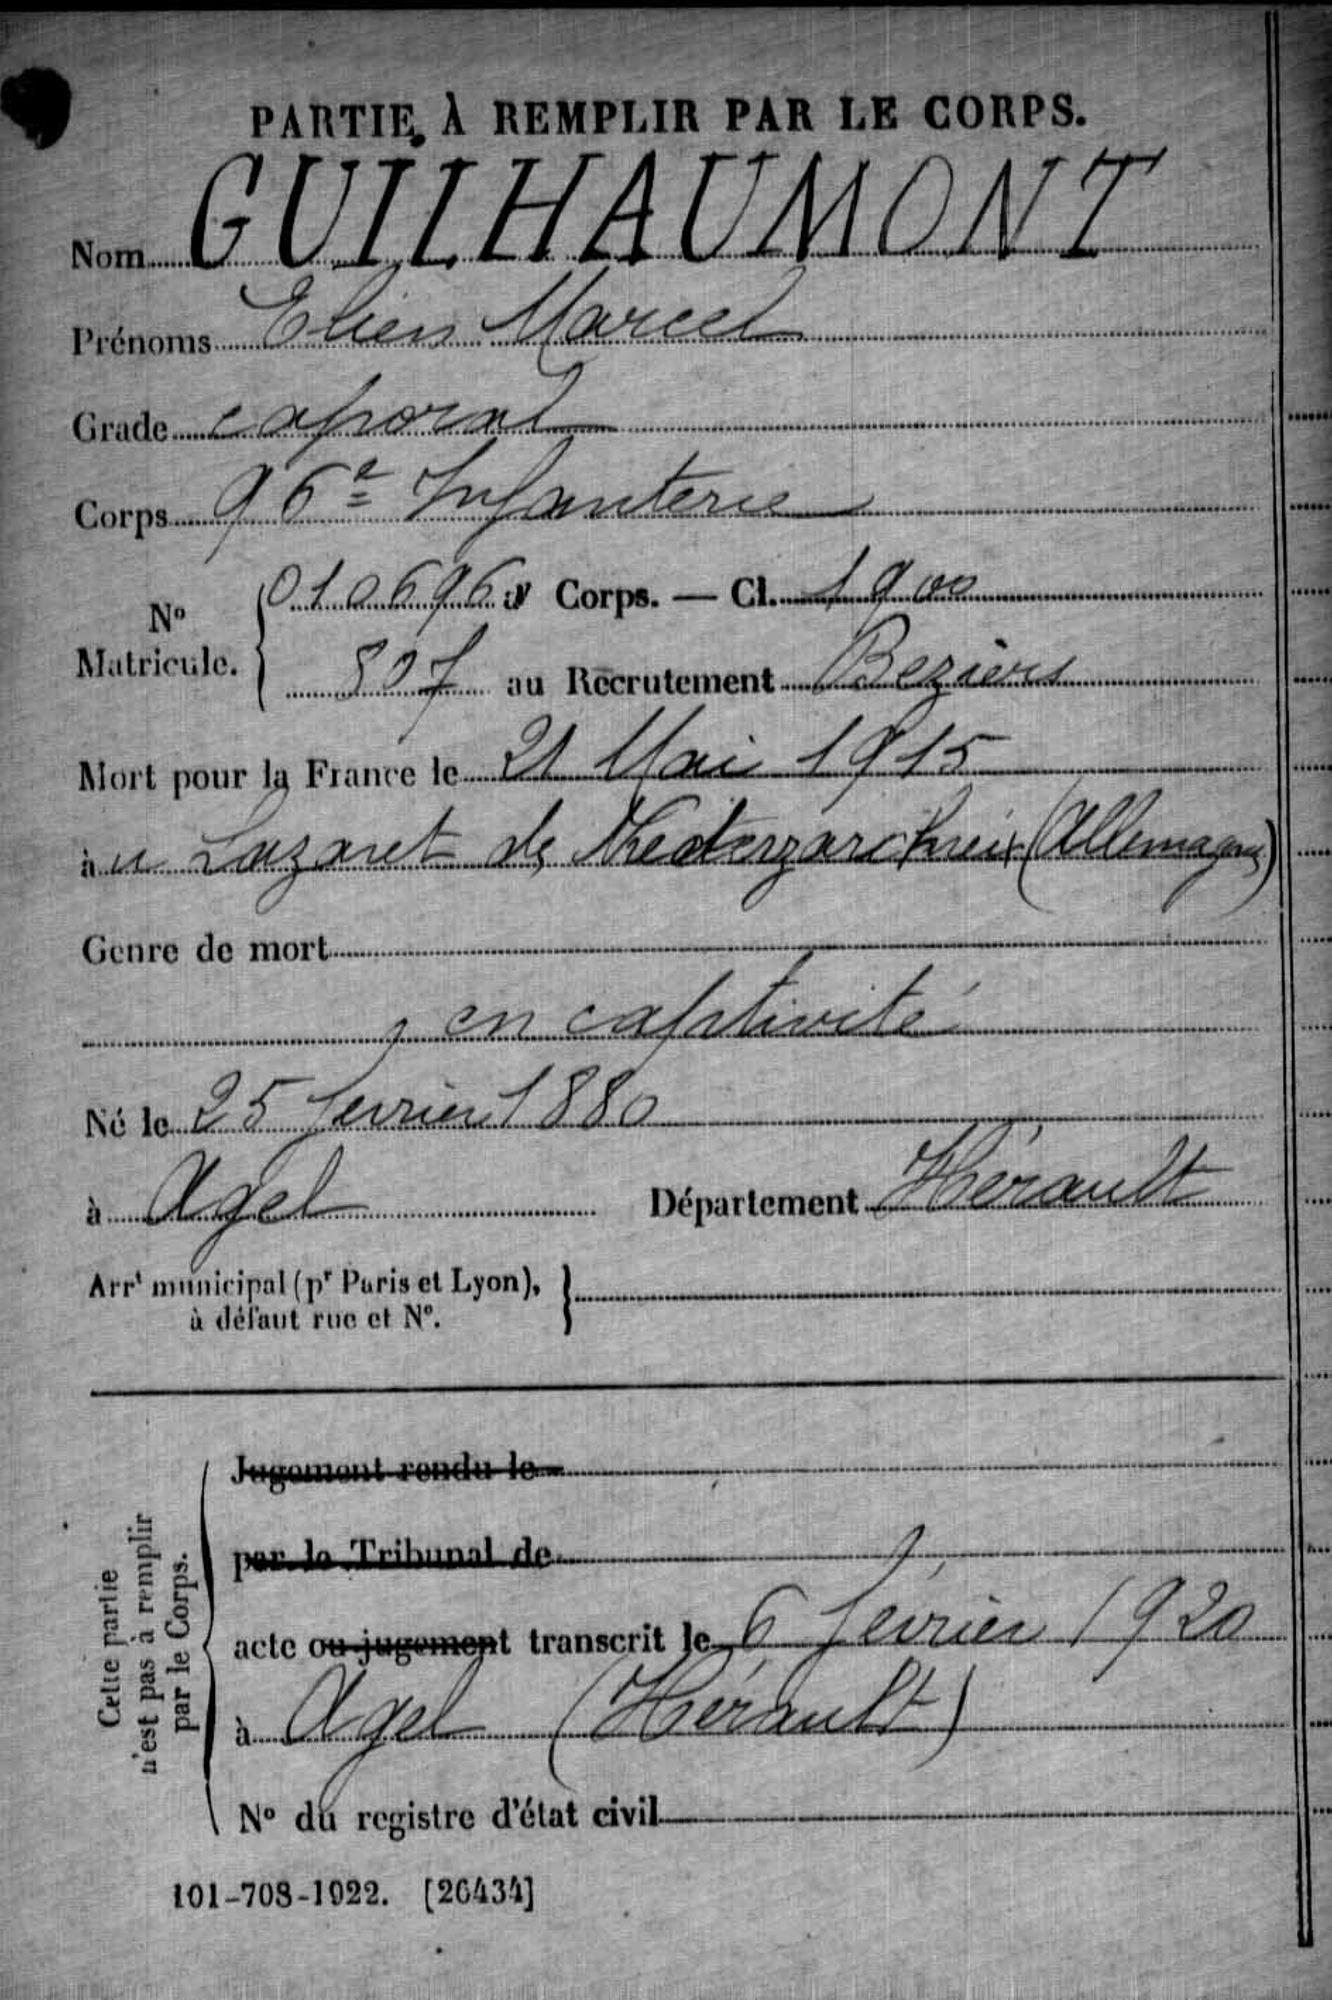 PARTIE À REMPLIR PAR LE CORPS.
Nom GUILHAUMONT
Prénoms Elien Marcel
Grade caporal
Corps 96e Infanterie
No Matricule. 010696 au Corps. — Cl. 1900
807 au Recrutement Beziers
Mort pour la France le 21 Mai 1915
au Lazaret de (Allemagne)
Genre de mort
en captivité
Né le 25 fevrier 1880
à Agel Département Hérault
Arrt municipal (pr Paris et Lyon),
à défaut rue et No.
Cette partie
n'est pas à remplir
par le Corps.
Jugement rendu le
par le Tribunal de
acte ou jugement transcrit le 6 février 1920
à Agel (Hérault)
No du registre d'état civil
101-708-1922. [26434]